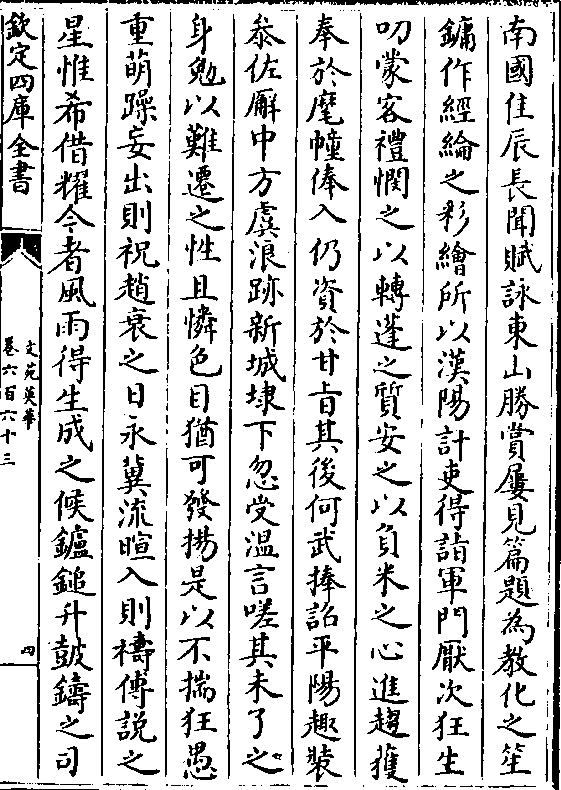 南國佳辰長聞賦詠東山勝賞屢見篇題為教化之笙
鏞作經綸之彩繪所以漢陽計吏得詣軍門厭次狂生
叨蒙客禮憫之以轉蓬之質安之以負米之心進趨獲
奉於麾幢俸入仍資於甘旨其後何武捧詔平陽趣裝
忝佐廨中方虞浪跡新城埭下忽受溫言嗟其未了之
身勉以難遷之性且憐色目猶可發揚是以不揣狂愚
重萌躁妄出則祝趙衰之日永冀流暄入則禱傅說之
星惟希借耀今者風雨得生成之候鑪鎚升鼓鑄之司
欽定四庫全書
文苑英華
卷六百六十三
四